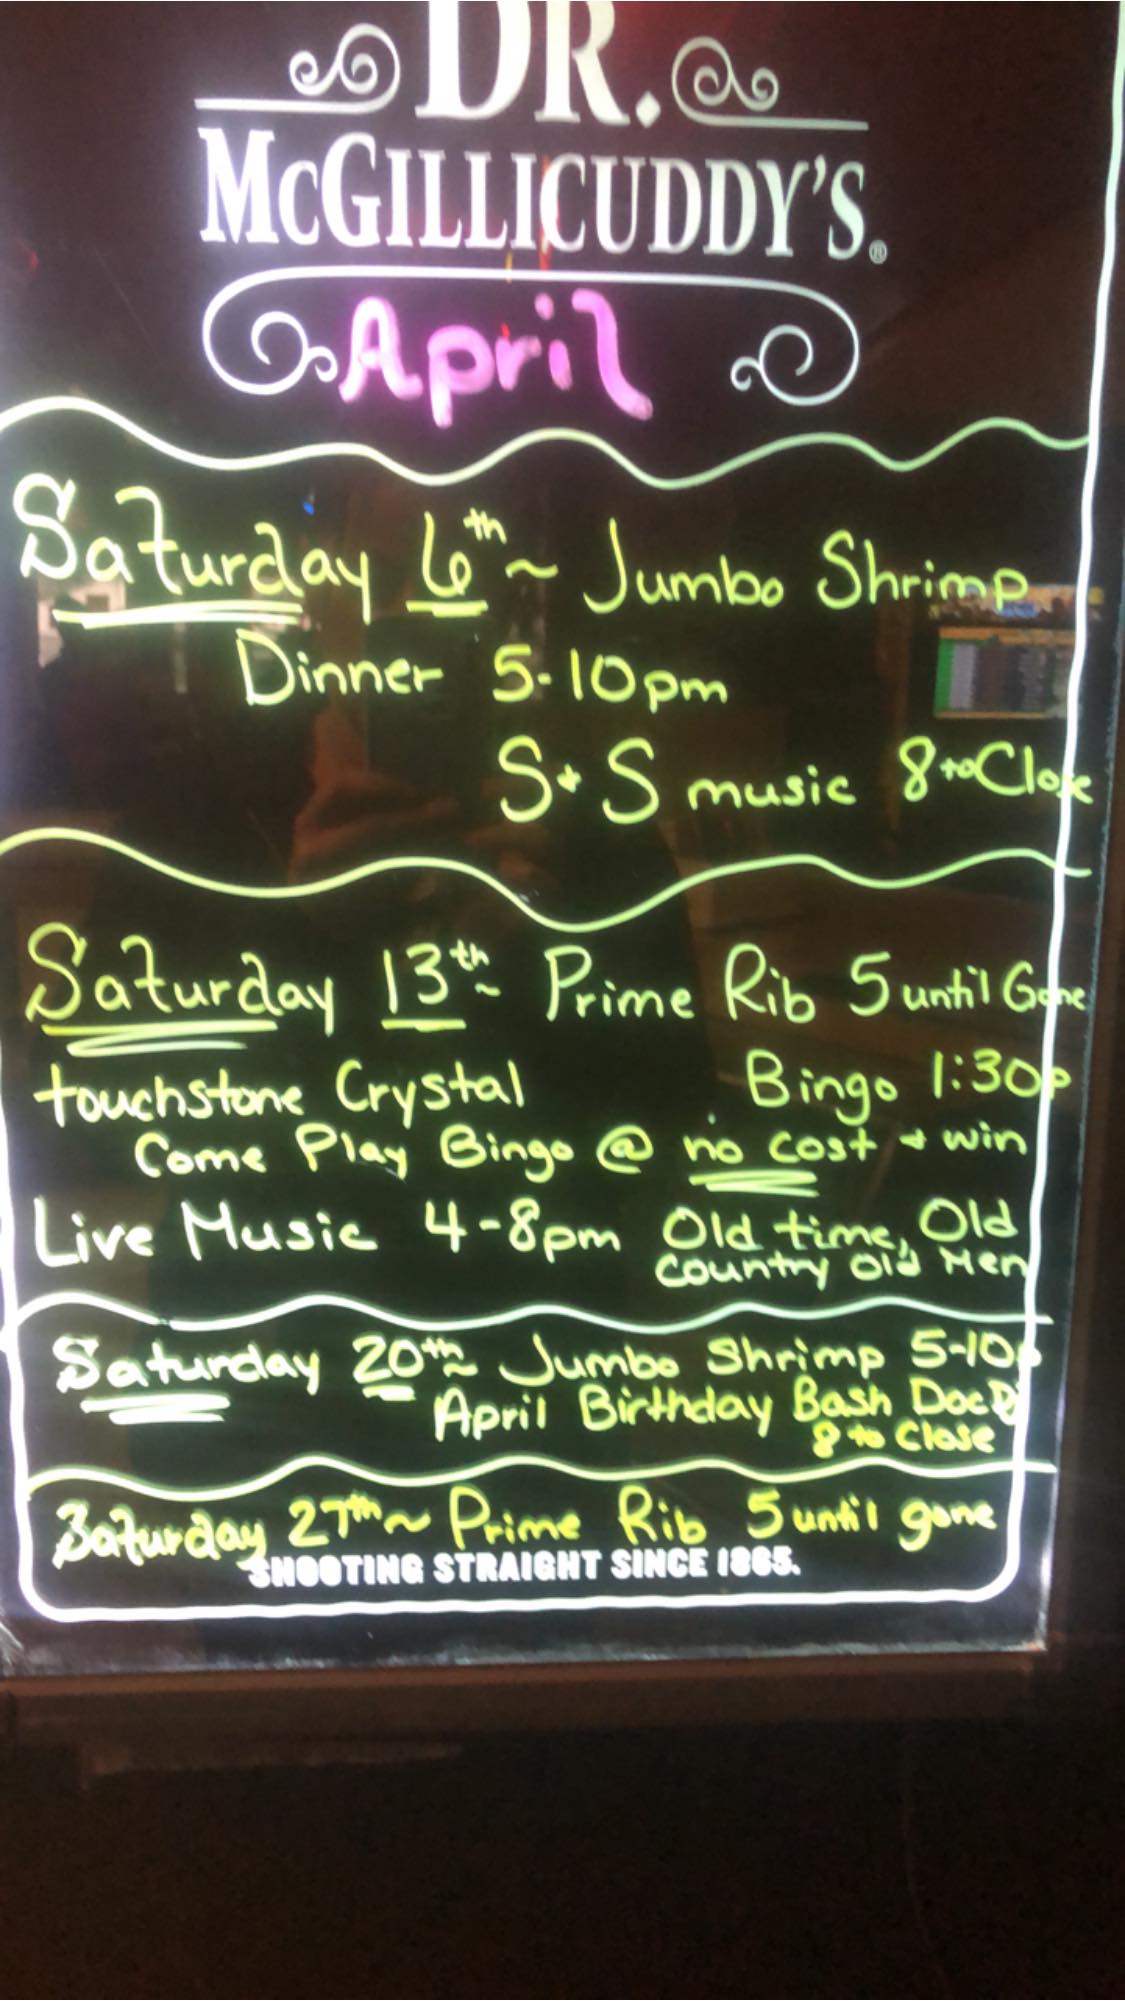 DR.
McGILLICUDDY'S®
April
Saturday 6th ~ Jumbo Shrimp
Dinner 5-10pm
S+S music 8 to Close
Saturday 13th ~ Prime Rib 5 until Gone
touchstone Crystal Bingo 1:30p
Come Play Bingo @ no cost + win
Live Music 4-8pm Old time, Old
Country Old Men
Saturday 20th ~ Jumbo Shrimp 5-10p
April Birthday Bash Doc DJ
8 to Close
Saturday 27th ~ Prime Rib 5 until gone
SHOOTING STRAIGHT SINCE 1865.